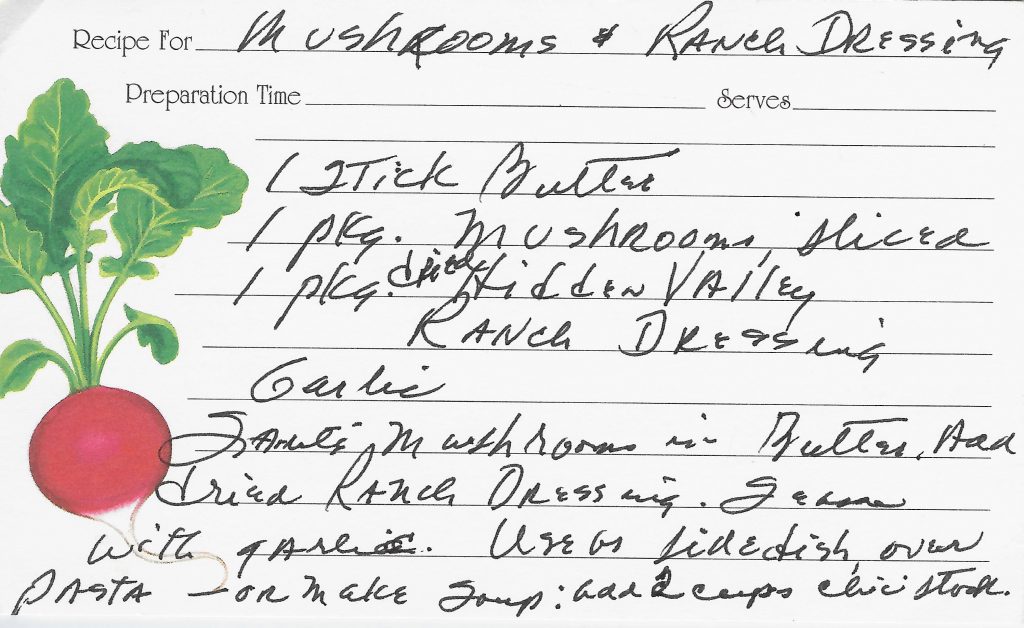 Recipe For Mushrooms & Ranch Dressing
Preparation Time Serves
1 Stick Butter
1 pkg. Mushrooms, sliced
1 pkg. dried Hidden Valley
Ranch Dressing
Garlic
Sauté Mushrooms in Butter. Add
dried Ranch Dressing. Season
with garlic. Use as sidedish, over
Pasta – or make Soup: add 2 cups chic stock.